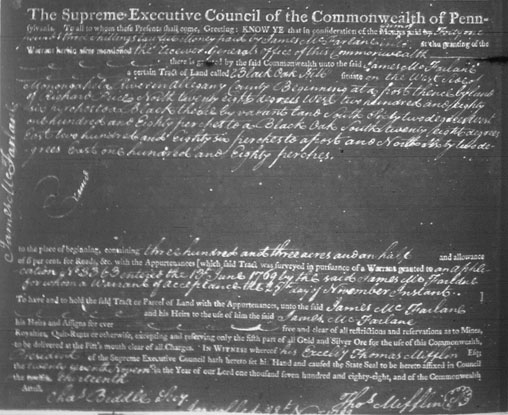 The Supreme-Executive Council of the Commonwealth of Penn-
sylvania, To all to whom these Presents shall come, Greeting: KNOW YE that in consideration of the Monies paid by Forty one
three shillings and five Money paid by James McFarlane into at the granting of the
Warrant herein after mentioned the Receiver Generals office of this Commonwealth
there is granted by the said Commonwealth unto the said James McFarlane
a certain Tract of Land called Black Oak Hill situate on the West side of
Monongahela River in Allegany County Beginning at a post thence by land
of Richard North twenty eight degrees West two hundred and seventy
six perches to a thence by vacant land South Sixty two degrees West
one hundred and Eighty perches to a Black Oak South twenty eight degrees
East two hundred and eighty six perches to a post and North Sixty two de-
grees East one hundred and Eighty perches.
James McFarlane
James
to the place of beginning, containing three hundred and three acres and an half and allowance
of 6 per cent. for Roads, &c. with the Appurtenances [which said Tract was surveyed in pursuance of a Warrant granted to an appli-
cation No 3363 entered the 13th June 1769 by the said James McFarlane
for whom a Warrant of acceptance the 25th day of November Instant
To have and to hold the said Tract or Parcel of Land with the Appurtenances, unto the said James McFarlane
and his Heirs to the use of him the said James McFarlane
his Heirs and Assigns for ever free and clear of all restrictions and reservations as to Mines,
Royalties, Quit-Rents or otherwise, excepting and reserving only the fifth part of all Gold and Silver Ore for the use of this Commonwealth,
to be delivered at the Pitt's mouth clear of all Charges. In WITNESS whereof his Excelcy Thomas Mifflin Esq;
President of the Supreme Executive Council hath hereto set his Hand and caused the State Seal to be hereto affixed in Council
the twenty seventh in the Year of our Lord one thousand seven hundred and eighty-eight, and of the Commonwealth
the thirteenth
Attest,
Chas Biddle Secy.
Thos Mifflin